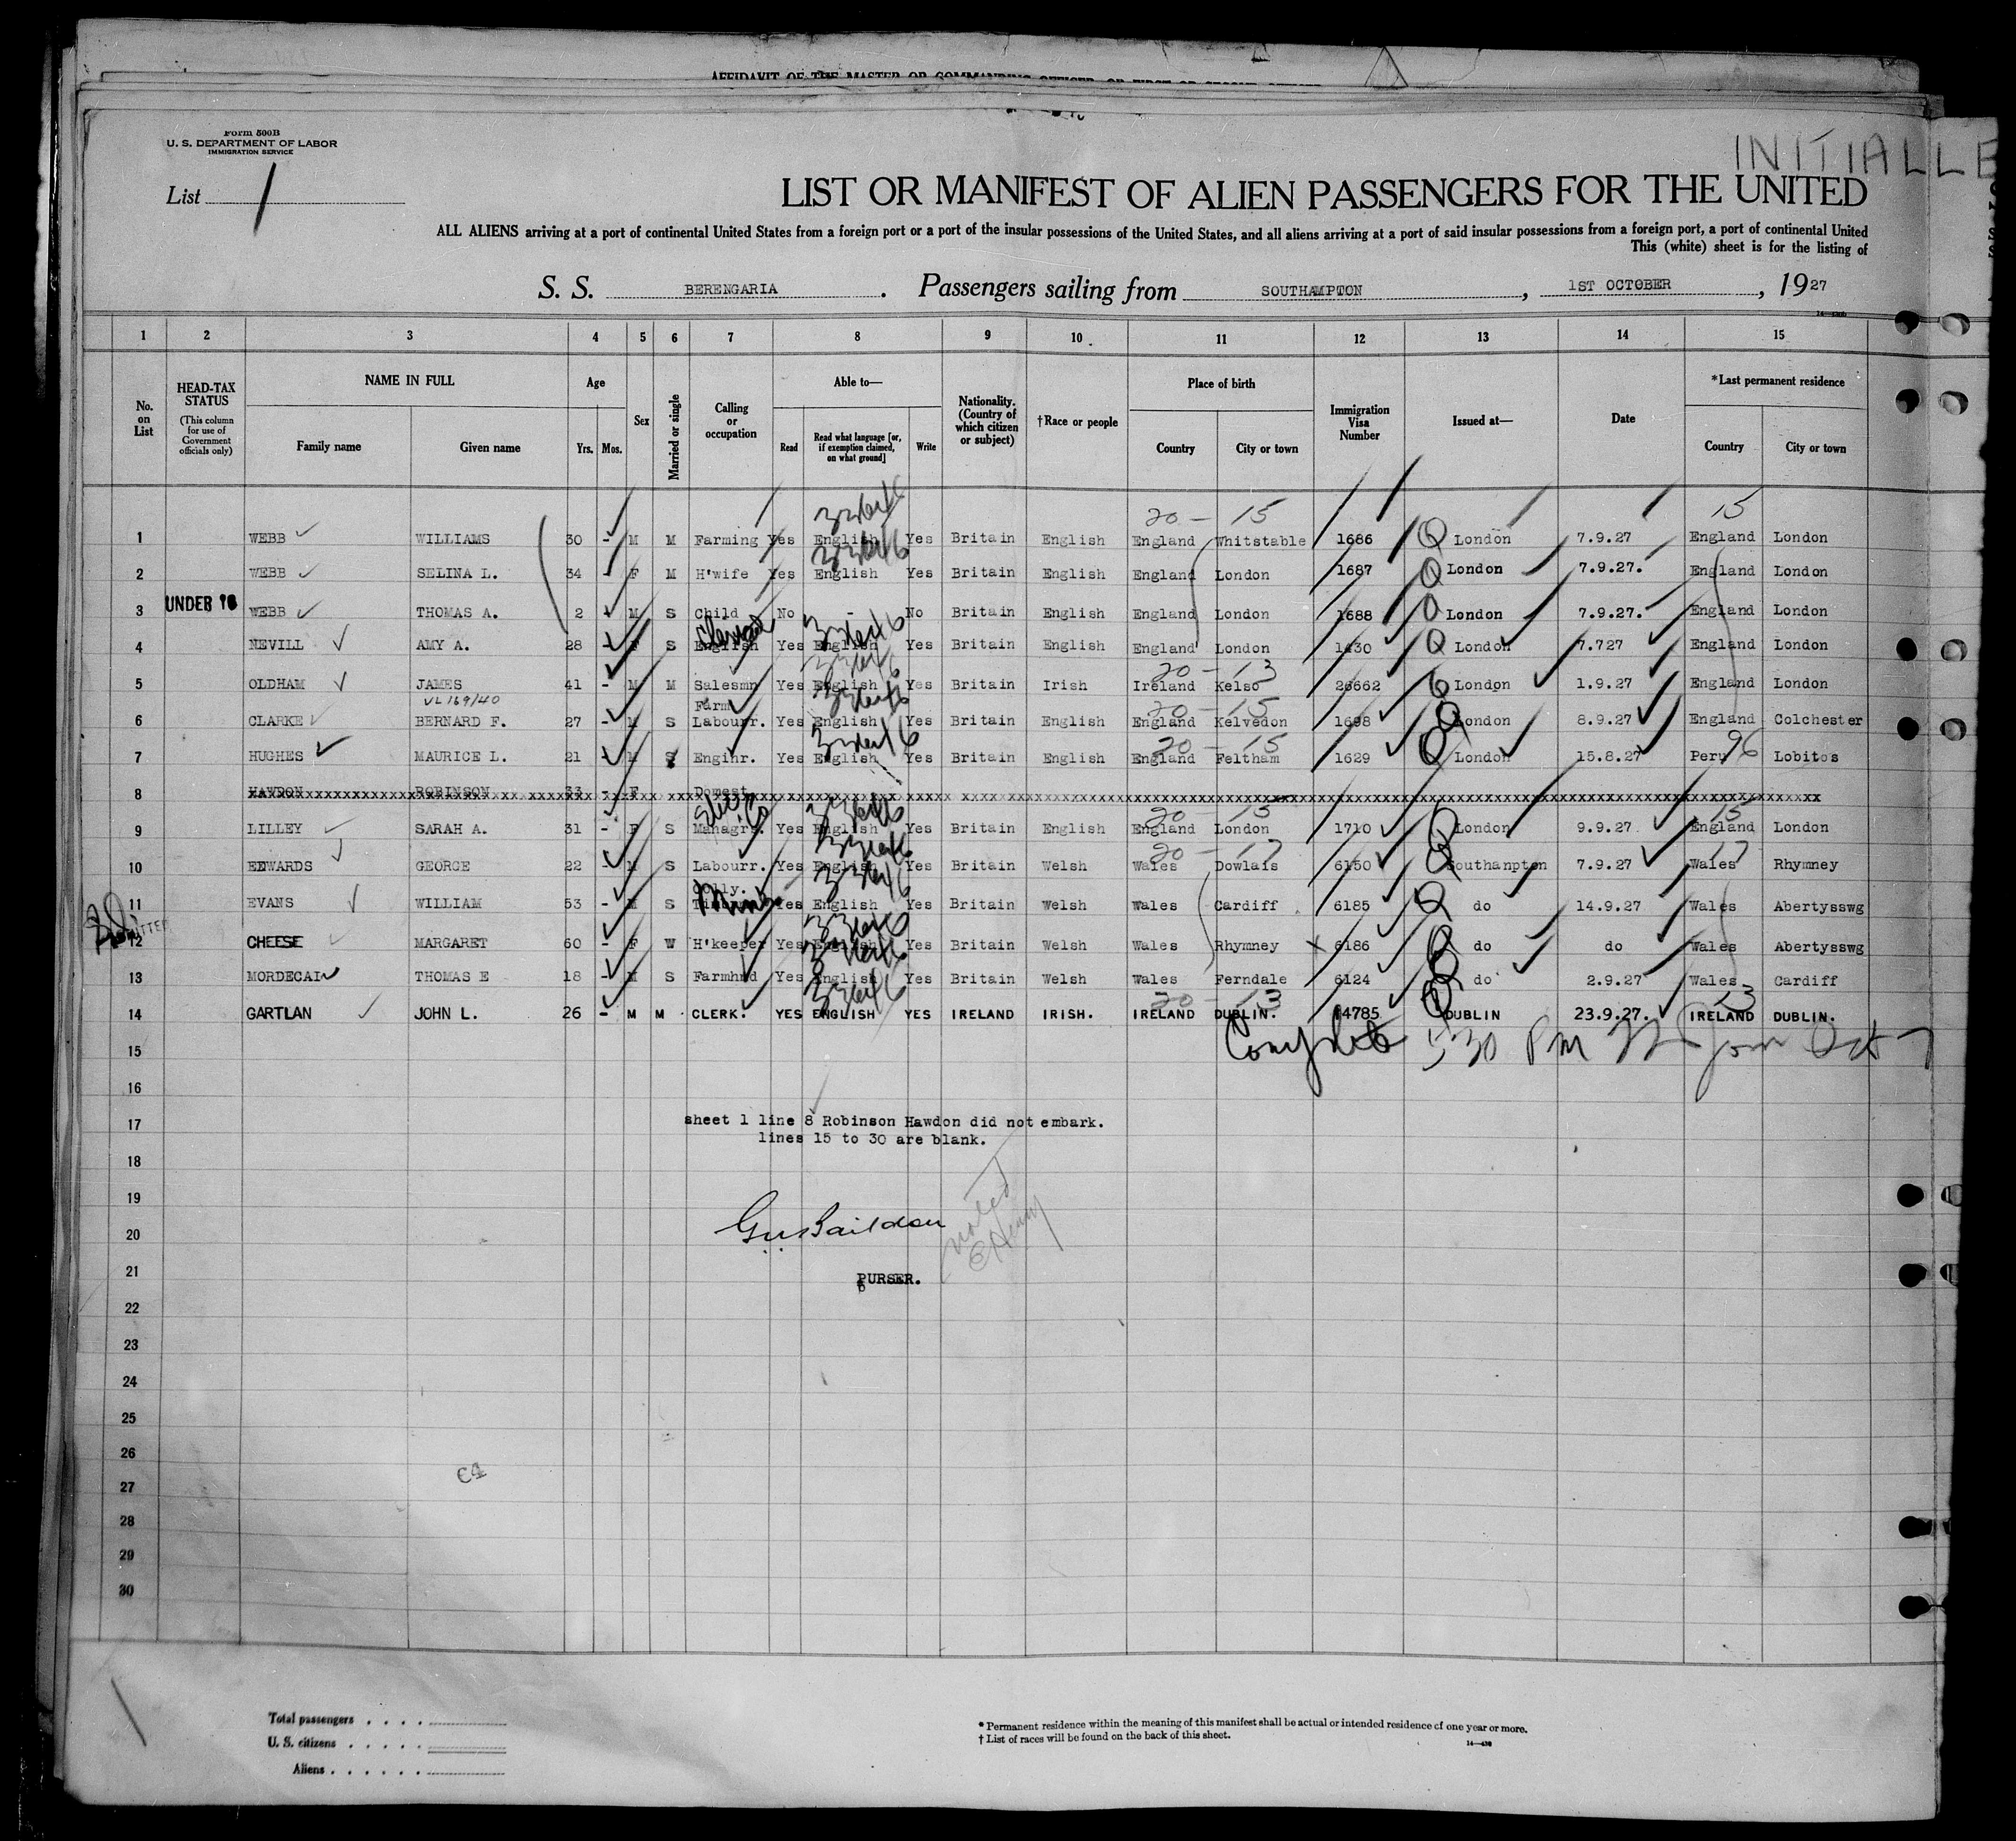 AFFIDAVIT OF THE MASTER OR COMMANDING OFFICER, OR FIRST OR SECOND OFFICER
Form 500B
U. S. DEPARTMENT OF LABOR
IMMIGRATION SERVICE
INITIALLE
List 1
LIST OR MANIFEST OF ALIEN PASSENGERS FOR THE UNITED
ALL ALIENS arriving at a port of continental United States from a foreign port or a port of the insular possessions of the United States, and all aliens arriving at a port of said insular possessions from a foreign port, a port of continental United
This (white) sheet is for the listing of
S. S. BERENGARIA. Passengers sailing from SOUTHAMPTON, 1ST OCTOBER, 1927
1 2 3 4 5 6 7 8 9 10 11 12 13 14 15
No. on List HEAD-TAX STATUS (This column for use of Government officials only) NAME IN FULL Family name Given name Age Yrs. Mos. Sex Married or single Calling or occupation Able to— Read Read what language [or, if exemption claimed, on what ground] Write Nationality. (Country of which citizen or subject) †Race or people Place of birth Country City or town Immigration Visa Number Issued at— Date *Last permanent residence Country City or town
20 - 15 15
1 WEBB WILLIAMS 30 - M M Farming Yes English Yes Britain English England Whitstable 1686 London 7.9.27 England London
2 WEBB SELINA L. 34 - F M H'wife Yes English Yes Britain English England London 1687 London 7.9.27. England London
3 UNDER 16 WEBB THOMAS A. 2 M S Child No - No Britain English England London 1688 London 7.9.27. England London
4 NEVILL AMY A. 28 - F S English Yes English Yes Britain English England London 1430 London 7.727 England London
20 - 13
5 OLDHAM JAMES 41 - M M Salesmn Yes English Yes Britain Irish Ireland Kelso 26662 London 1.9.27 England London
VL 169/40 Farm 20 - 15
6 CLARKE BERNARD F. 27 - M S Labourr. Yes English Yes Britain English England Kelvedon 1698 London 8.9.27 England Colchester
20 - 15 96
7 HUGHES MAURICE L. 21 - M S Enginr. Yes English Yes Britain English England Feltham 1629 London 15.8.27 Peru Lobitos
8 HAWDON ROBINSON 33 - F Domest
20 - 15 15
9 LILLEY SARAH A. 31 - F S Managrs. Yes English Yes Britain English England London 1710 London 9.9.27 England London
20 - 17 17
10 EDWARDS GEORGE 22 - M S Labourr. Yes English Yes Britain Welsh Wales Dowlais 6150 Southampton 7.9.27 Wales Rhymney
Colly.
11 EVANS WILLIAM 53 - M S Yes English Yes Britain Welsh Wales Cardiff 6185 do 14.9.27 Wales Abertysswg
ADMITTED
12 CHEESE MARGARET 60 - F W H'keeper Yes English Yes Britain Welsh Wales Rhymney 6186 do do Wales Abertysswg
13 MORDECAI THOMAS E 18 - M S Farmhnd Yes English Yes Britain Welsh Wales Ferndale 6124 do 2.9.27 Wales Cardiff
20 - 13 13
14 GARTLAN JOHN L. 26 - M M CLERK. YES ENGLISH YES IRELAND IRISH. IRELAND DUBLIN. 14785 DUBLIN 23.9.27. IRELAND DUBLIN.
15 Complete 5:30 PM Oct 7
16
17 sheet 1 line 8 Robinson Hawdon did not embark.
lines 15 to 30 are blank.
18
19
20 noted
21 PURSER.
22
23
24
25
26
27
28
29
30
Total passengers . . . .
U. S. citizens . . . . .
Aliens . . . . . .
* Permanent residence within the meaning of this manifest shall be actual or intended residence of one year or more.
† List of races will be found on the back of this sheet.
14—430